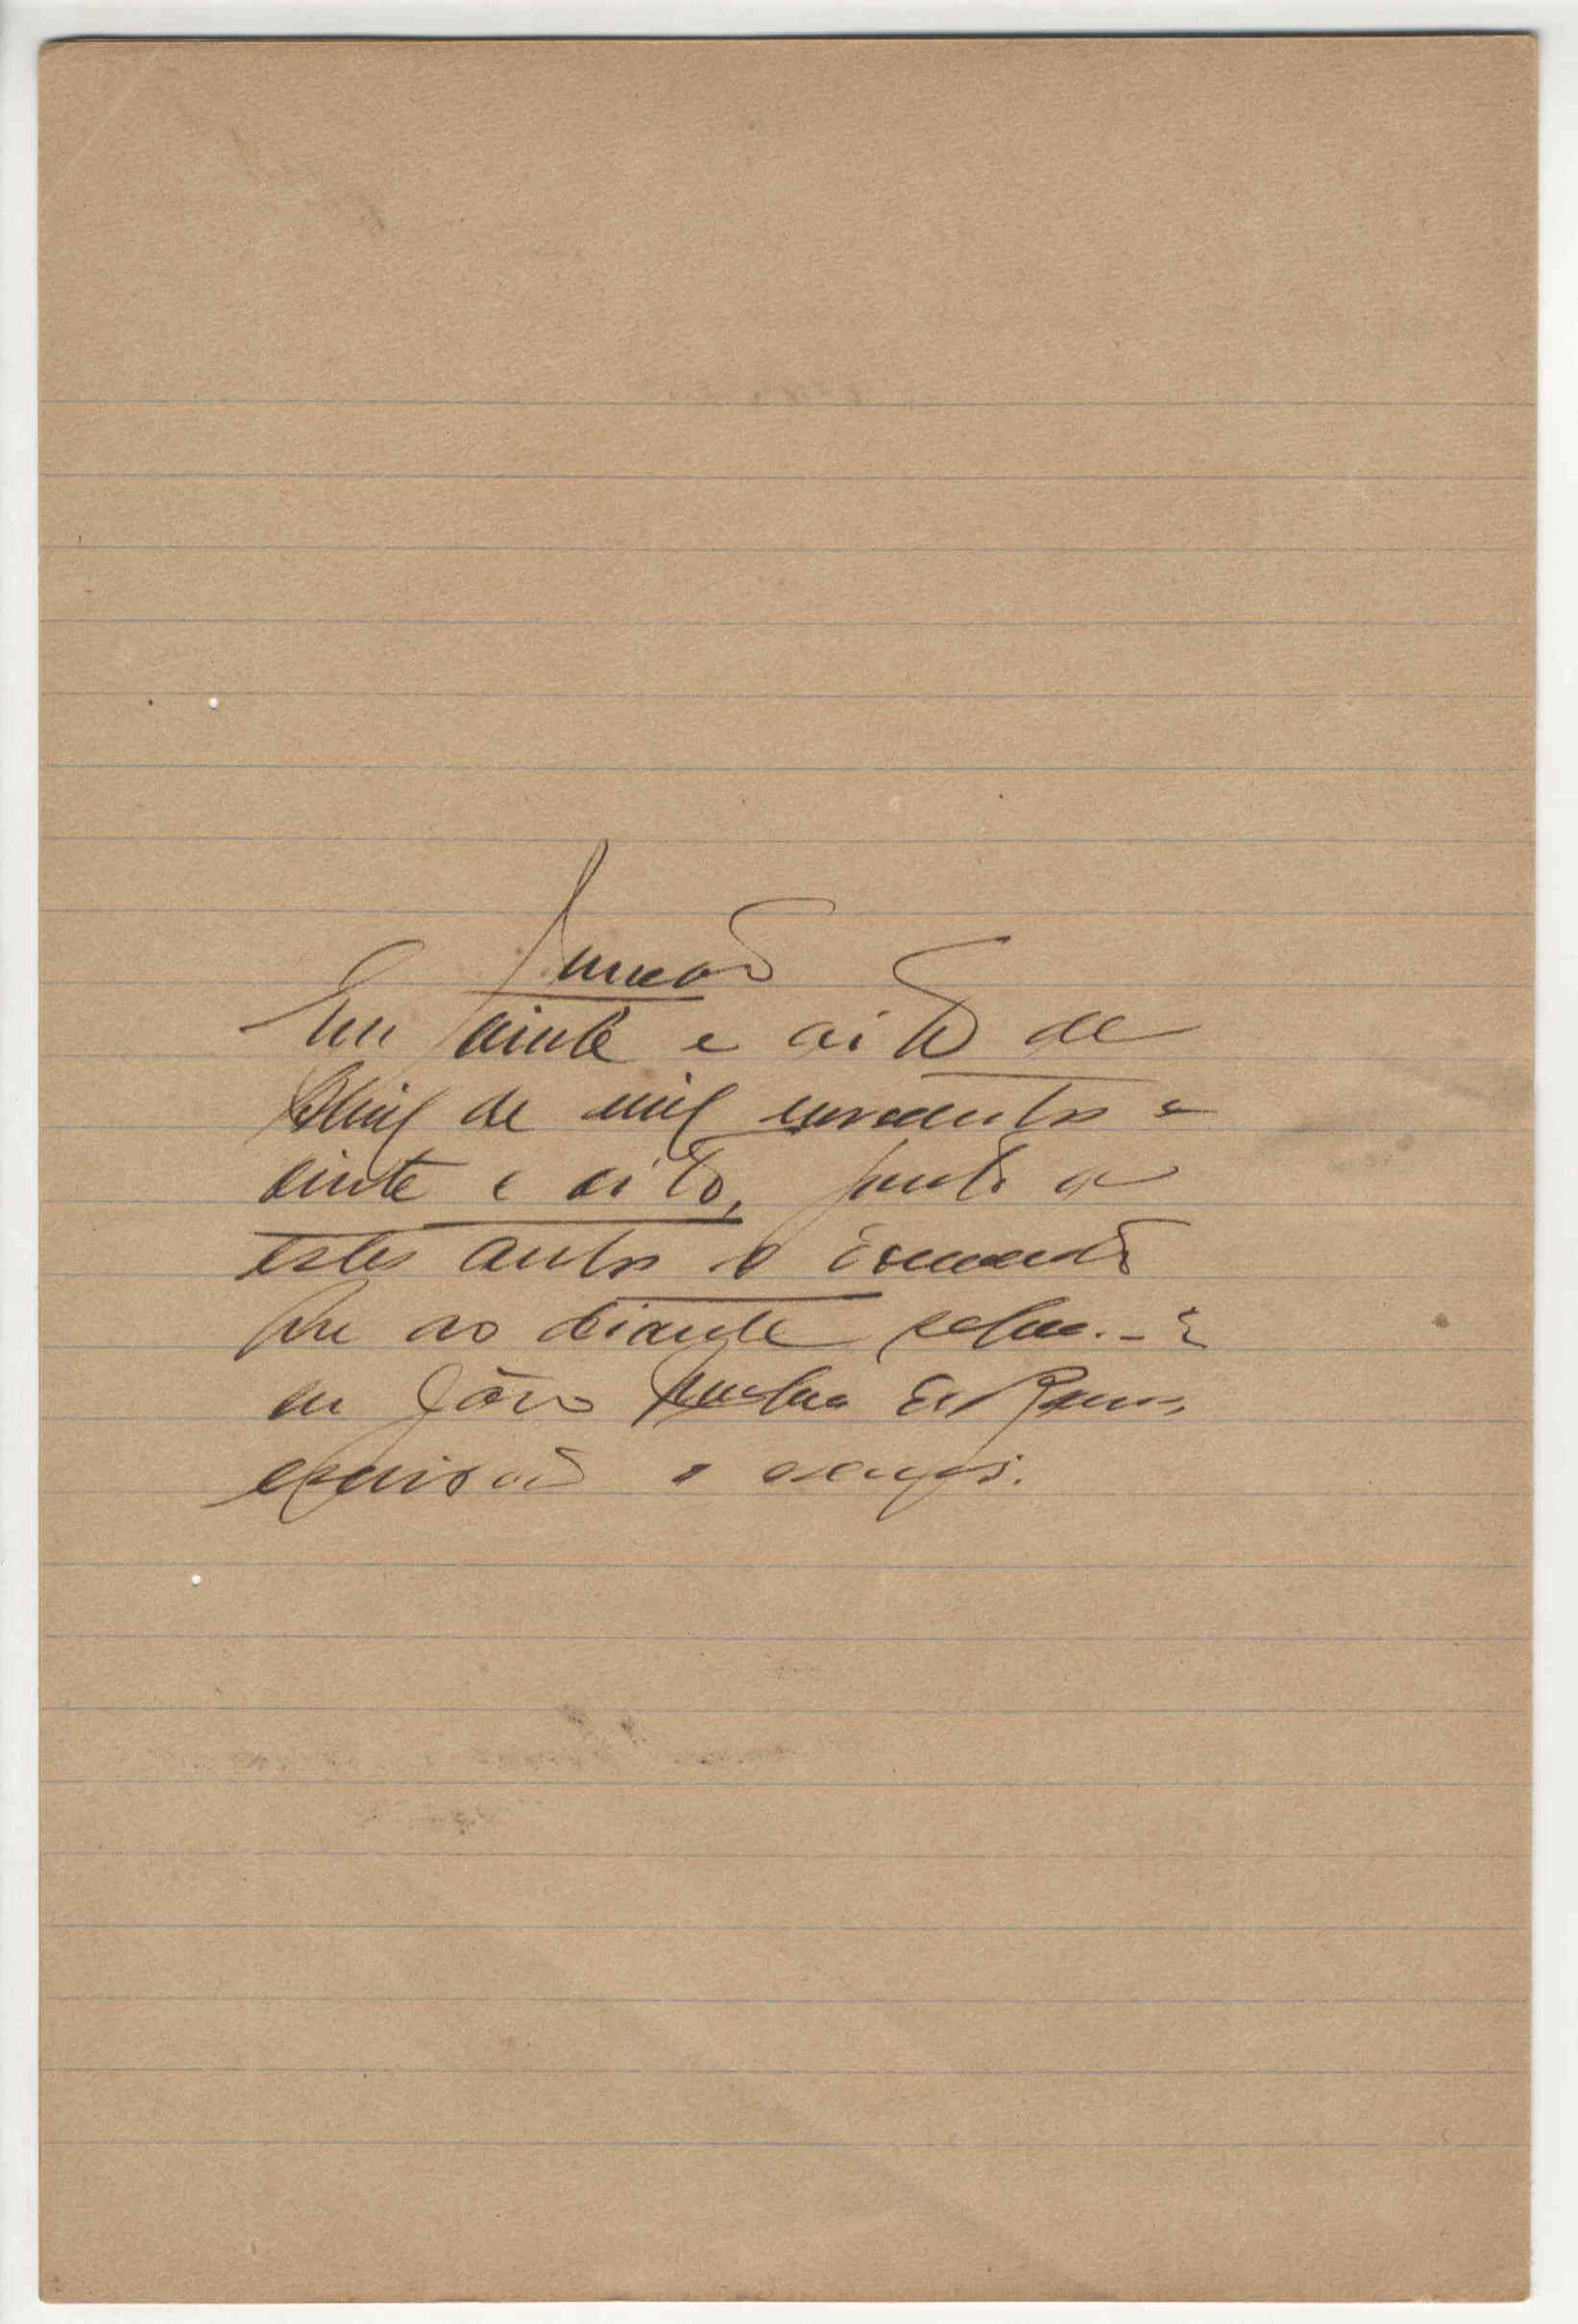 Juntada
Em vinte e oito de
Abril de mil novecentos e
vinte e oito, junto a
estes autos o
que ao diante se Eu
João
escrivão o escrevi.